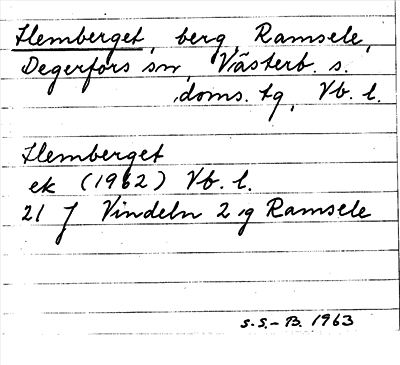 Hemberget, berg, Ramsele,
Degerfors sn, Västerb. s.
doms. tg, Vb. l.
Hemberget
ek (1962) Vb. l.
21 J Vindeln 2 g Ramsele
S.S.-B. 1963